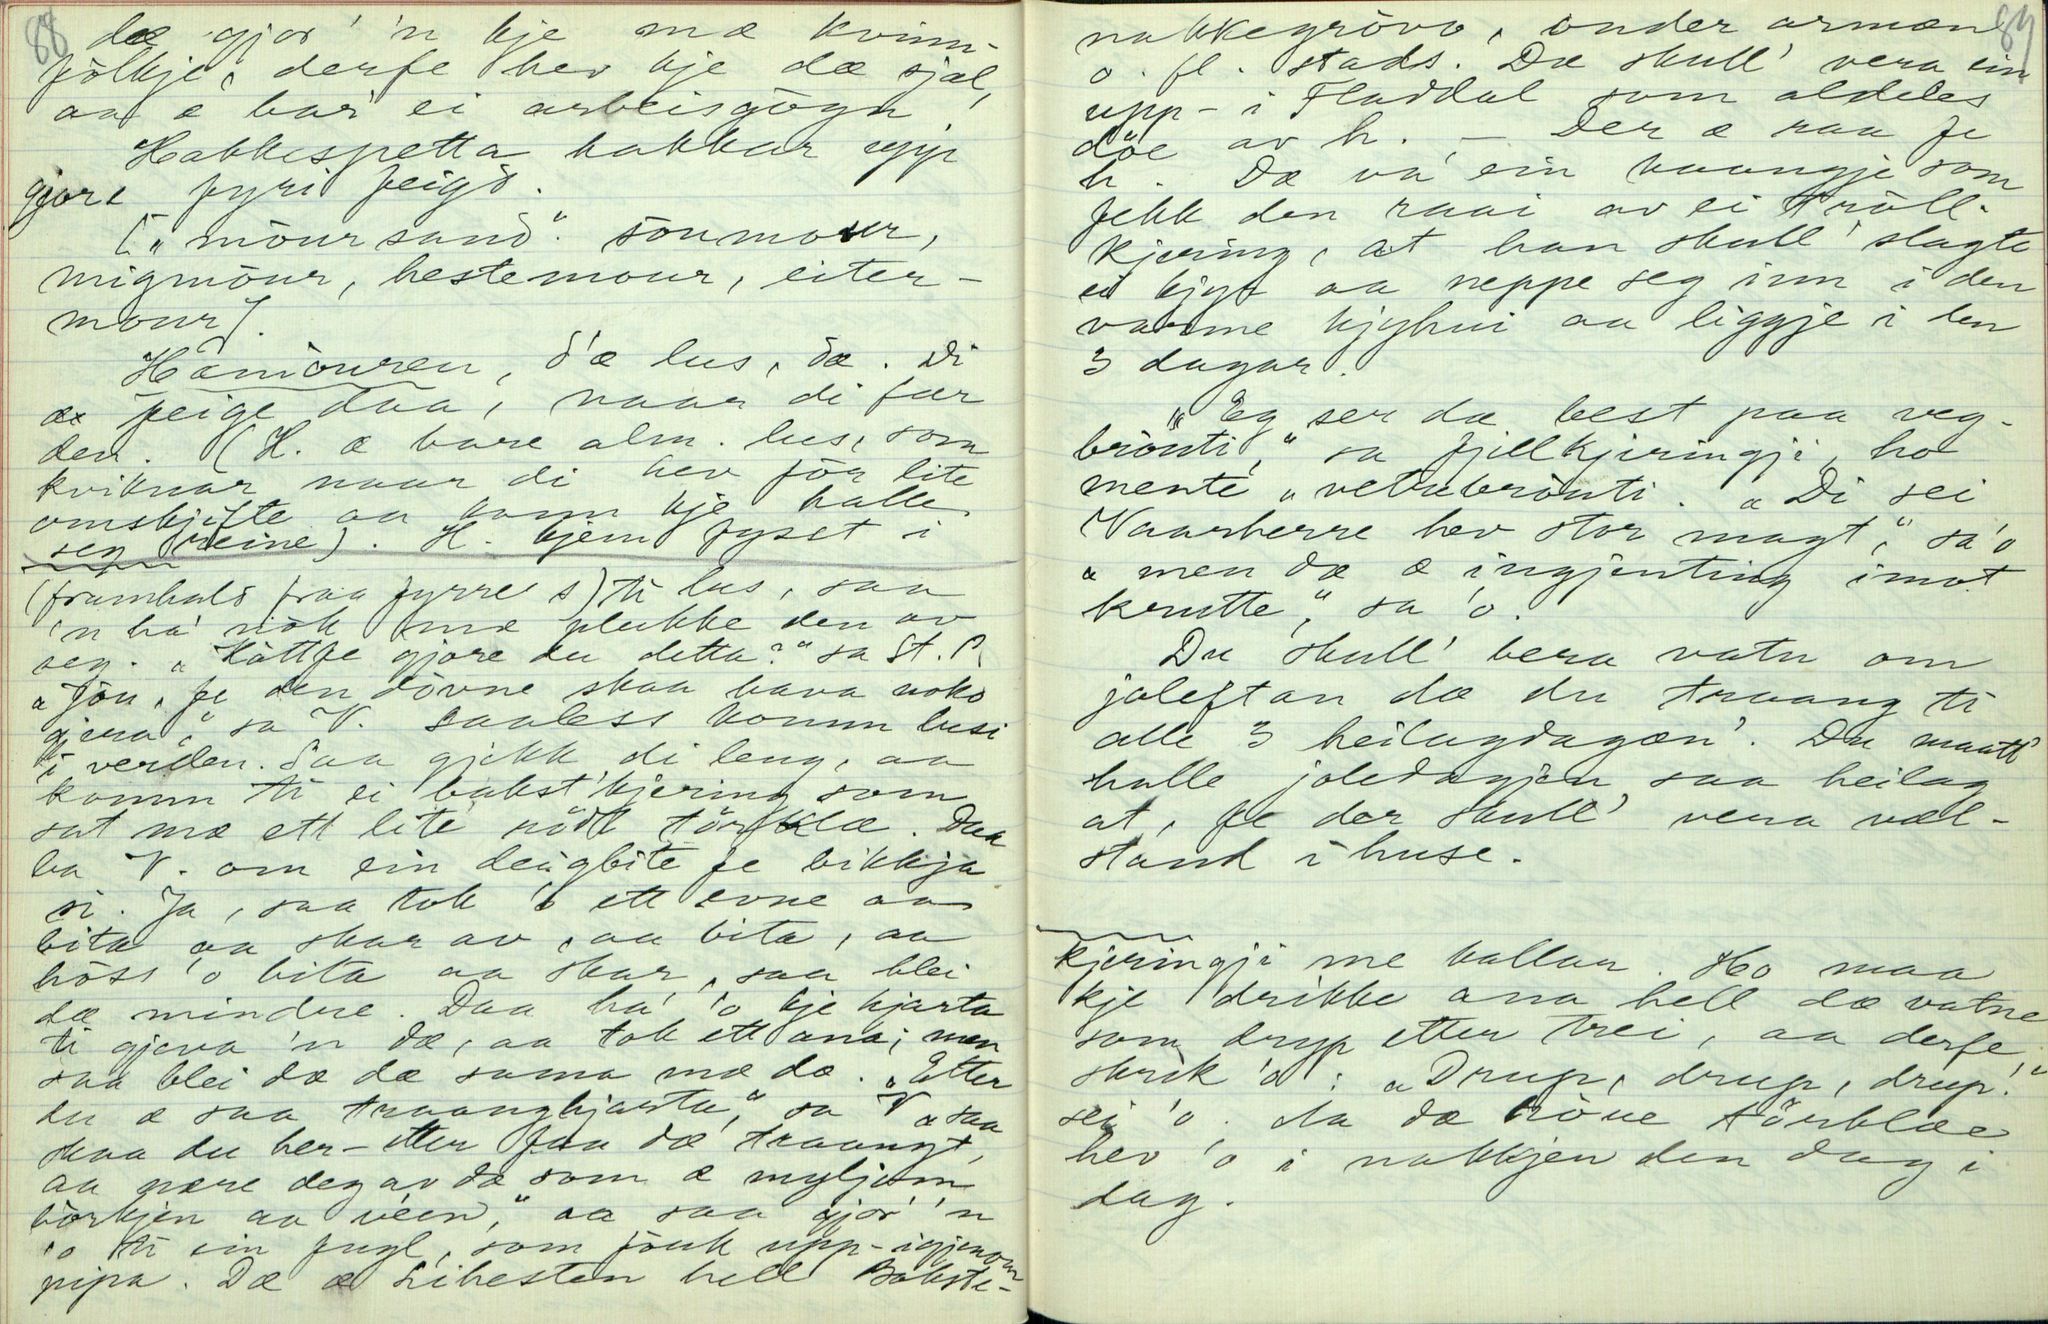 88
dæ gjor' 'n kje mæ kvinn-
fölkje, derfe hev kje dæ sjæl,
aa æ bar' ei arbeisgögn.
Hakkespetta hakkar upp
gjore fyri feigd.
["möursand". sönmour,
migmöur, hestemour, eiter-
mour].
Hamöuren, d'æ lus, dæ. Di
æ feige daa, naar di fær
den. (H. æ bare alm. lus, som
kviknar naar di hev för lite
omskjifte aa kann kje halle
seg reine). H. kjem fyset i
(framhald fraa fyrre s) ti lus, saa
'n ha' nök mæ plukke den av
seg. "Höttfe gjore du detta?" sa St. P.
"Jou, fe den dövne skaa hava noko
gjera," sa V. Saaless komm lusi
i verden. Saa gjekk di leng, aa
komm ti ei bakst'kjering som
sat mæ ett lite rödt törklæ. Daa
ba V. om ein deigbite fe bikkja
si. Ja, saa tok 'o ett evne aa
bita aa skar av, aa bita, aa
höss 'o bita aa skar, saa blei
dæ mindre. Daa ha' 'o kje hjarta
ti gjeva 'n dæ, aa tok ett ana; men
saa blei dæ dæ sama mæ dæ. "Etter
du æ saa traanghjarta," sa V. "saa
skaa du her-etter faa dæ traangt,
aa nære deg av dæ som æ myljom
börkjen aa véen," aa saa gjor' 'n
'o ti ein fugl, som fouk upp-igjenom
pipa. Dæ æ Lihesten hell Bakste-
89
nakkegröva, under armen
o. fl. stads. Dæ skull' vera ein
upp-i Fladdal som aldeles
döe av h. – Der æ raa fe
h. Dæ va' ein kaangje som
fekk den raai av ei tröll-
kjering, at han skull' slagte
ei kjyr aa neppe seg inn i den
varme kjyhui aa liggje i den
3 dagar.
"Eg ser dæ best paa veg-
brönti," sa fjellkjeringji, ho
mente "vetrebrönti. "Di sei
Vaarherre hev stor magt," sa 'o
"men dæ æ ingjenting imot
krutte," sa 'o.
Du skull' bera vatn om
joleftan dæ du traang ti
alle 3 heilagdagæn'. Du maatt'
halle joledagjen saa heilag
at, fe der skull' vera vel-
stand i huse.
kjeringji me kallar. Ho maa
kje drikke ana hell dæ vatne
som dryp etter trei, aa derfe
skrik 'o: "Drup, drup, drup!"
sei 'o. Aa dæ röue törklæe
hev 'o i nakkjen den dag i
dag.